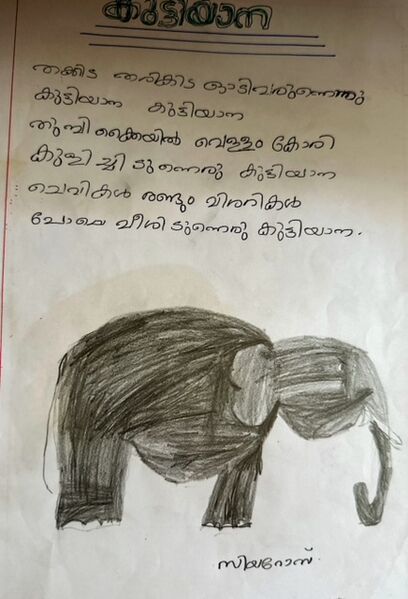 കുട്ടിയാന
തക്കിട തരികിട ഓടിവരുന്നൊരു
കുട്ടിയാന കുട്ടിയാന
തുമ്പിക്കൈയിൽ വെള്ളം കോരി
കുളിച്ചിടുന്നൊരു കുട്ടിയാന
ചെവികൾ രണ്ടും വിശറികൾ
പോലെ വീശിടുന്നൊരു കുട്ടിയാന.
സിയറോസ്